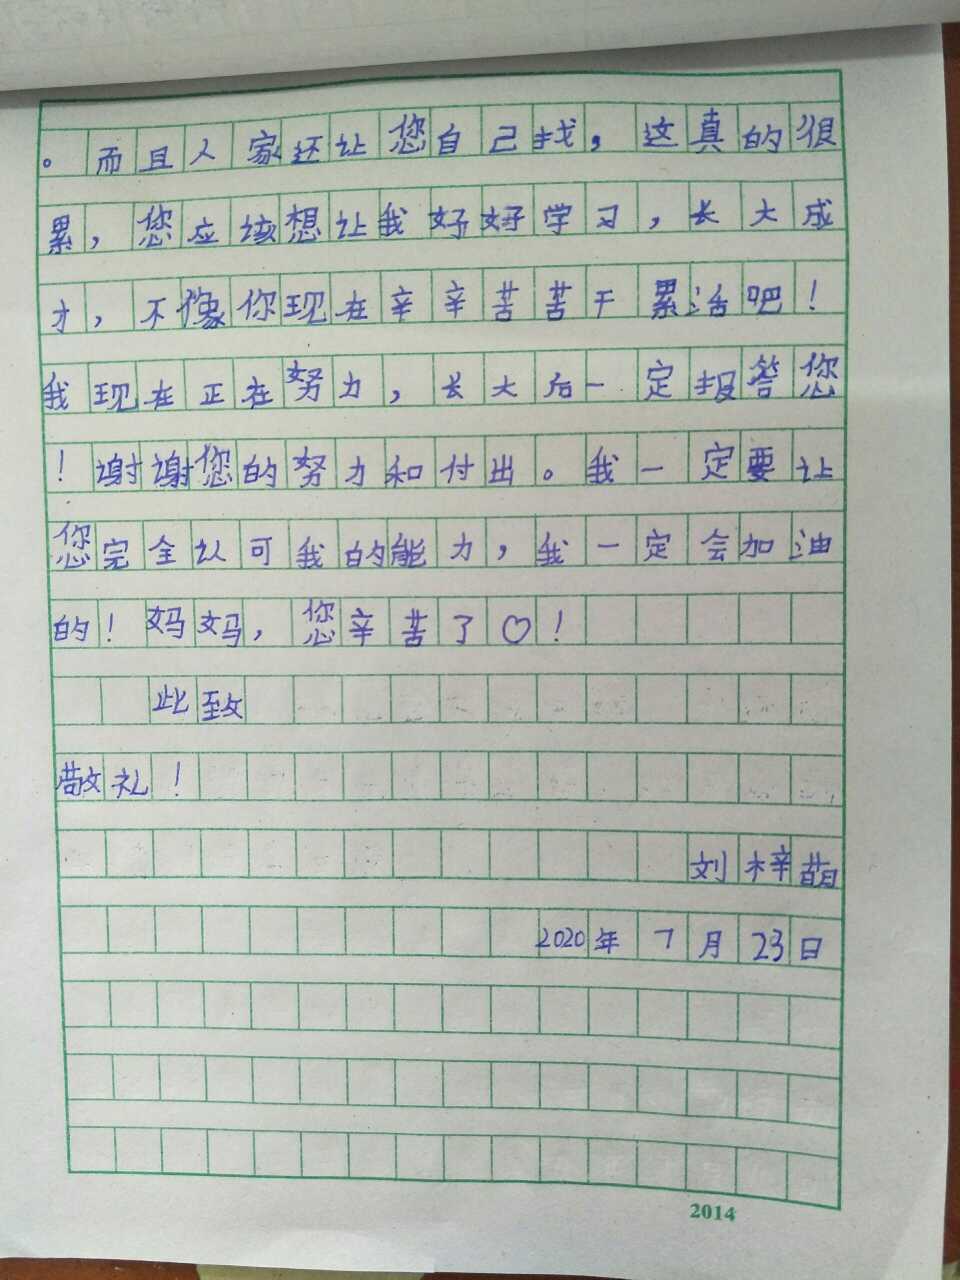 。而且人家还让您自己找，这真的很
累，您应该想让我好好学习，长大成
才，不像你现在辛辛苦苦干累活吧！
我现在正在努力，长大后一定报答您
！谢谢您的努力和付出。我一定要让
您完全认可我的能力，我一定会加油
的！妈妈，您辛苦了♡！
此致
敬礼！
刘梓萌
2020年7月23日
2014